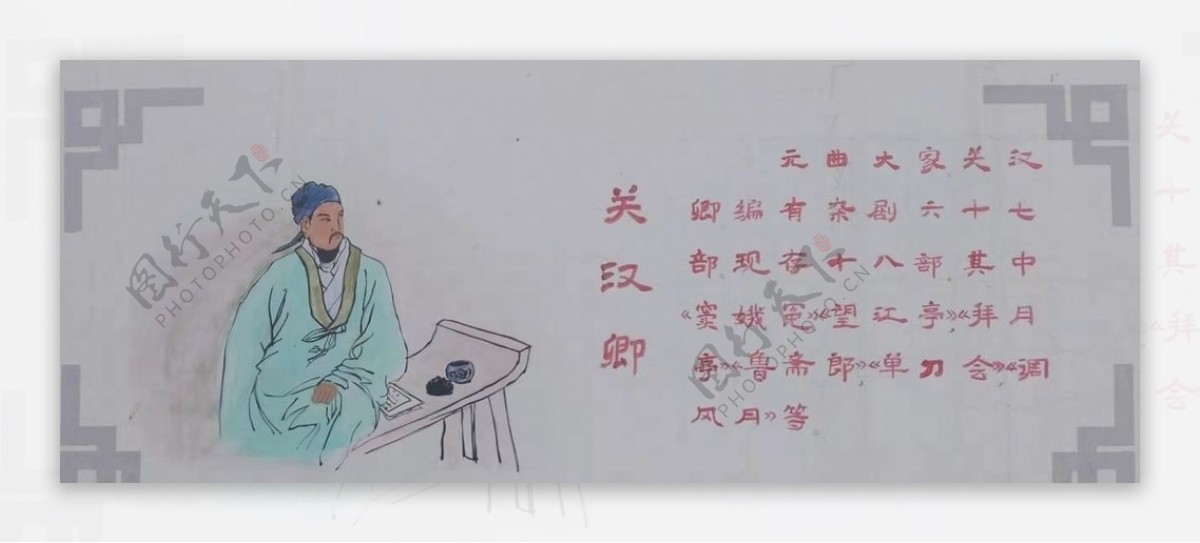 关汉卿
元曲大家关汉
卿编有杂剧六十七
部现存十八部其中
《窦娥冤》《望江亭》《拜月
亭》《鲁斋郎》《单刀会》《调
风月》等
图行天下
PHOTOPHOTO.CN
图行天下
PHOTOPHOTO.CN